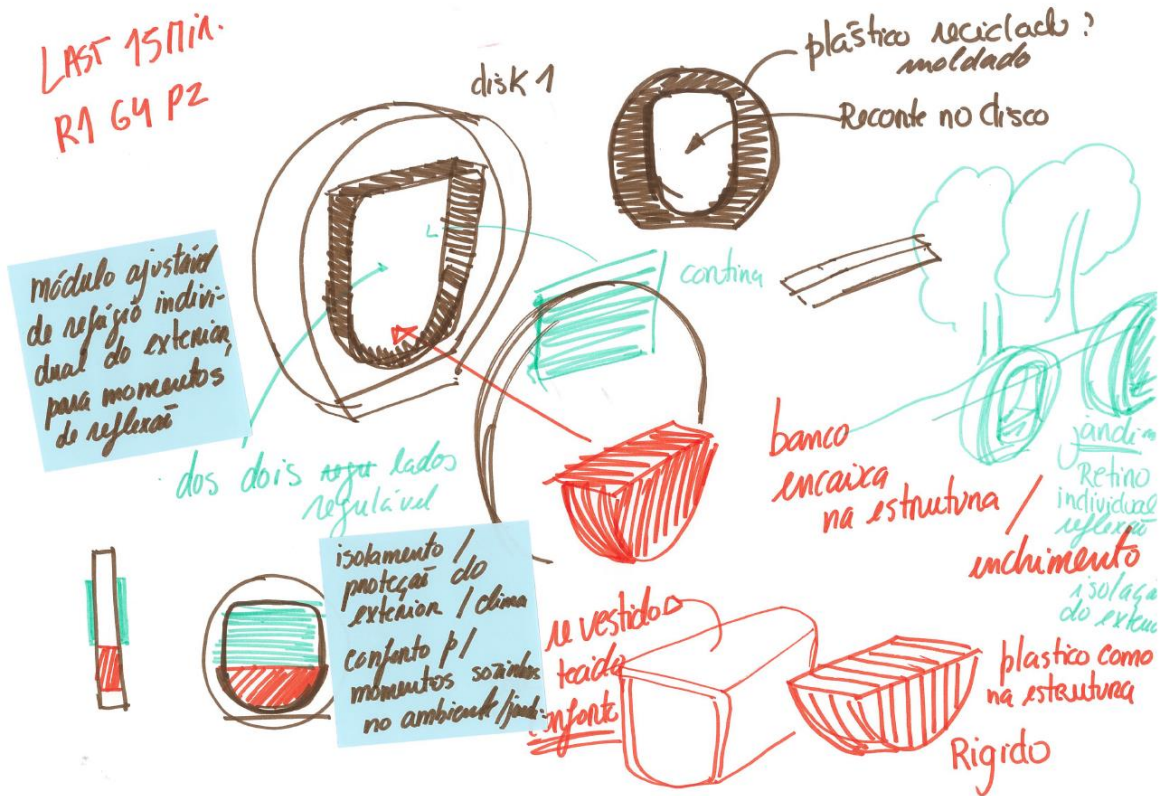 LAST 15Min.
R1 G4 P2
disk 1
plástico reciclado?
moldado
Recorte no disco
módulo ajustável
de refúgio indivi-
dual do exterior,
para momentos
de reflexão
cortina
dos dois lados
regulável
banco
encaixa
na estrutura /
enchimento
jardim
Retiro
individual
reflexão
isolaçã
do exteri
isolamento /
proteção do
exterior / clima
conforto p/
momentos sozinhos
no ambiente/jardi
revestido
tecido
conforto
plastico como
na estrutura
Rigido